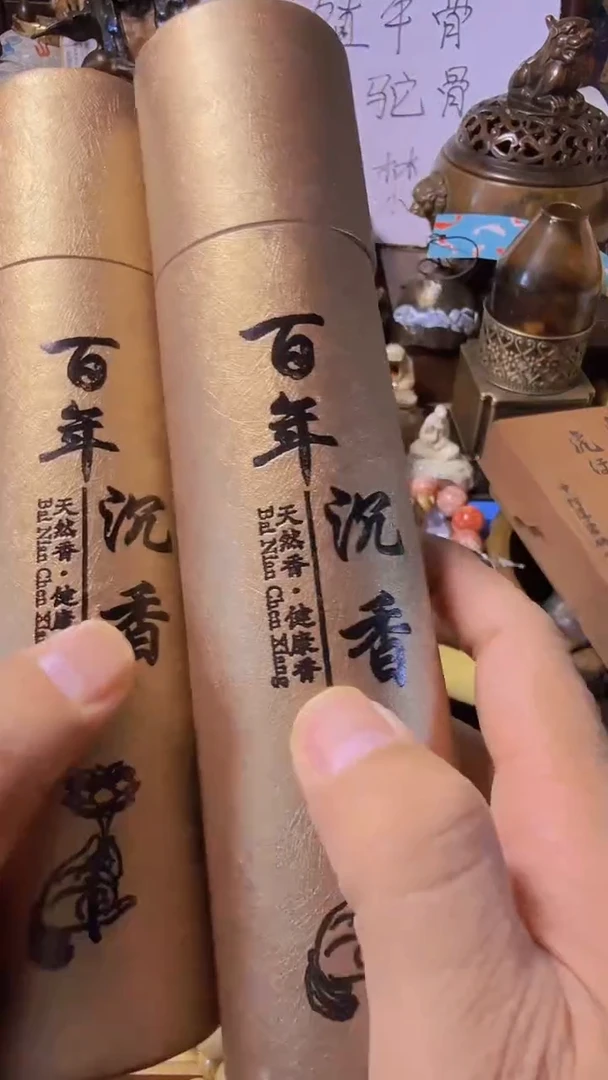 百年
沉香
天然香·健康
Bai Nian Chen Xia
百年
沉香
天然香·健康香
Bai Nian Chen Xiang
骨
驼骨